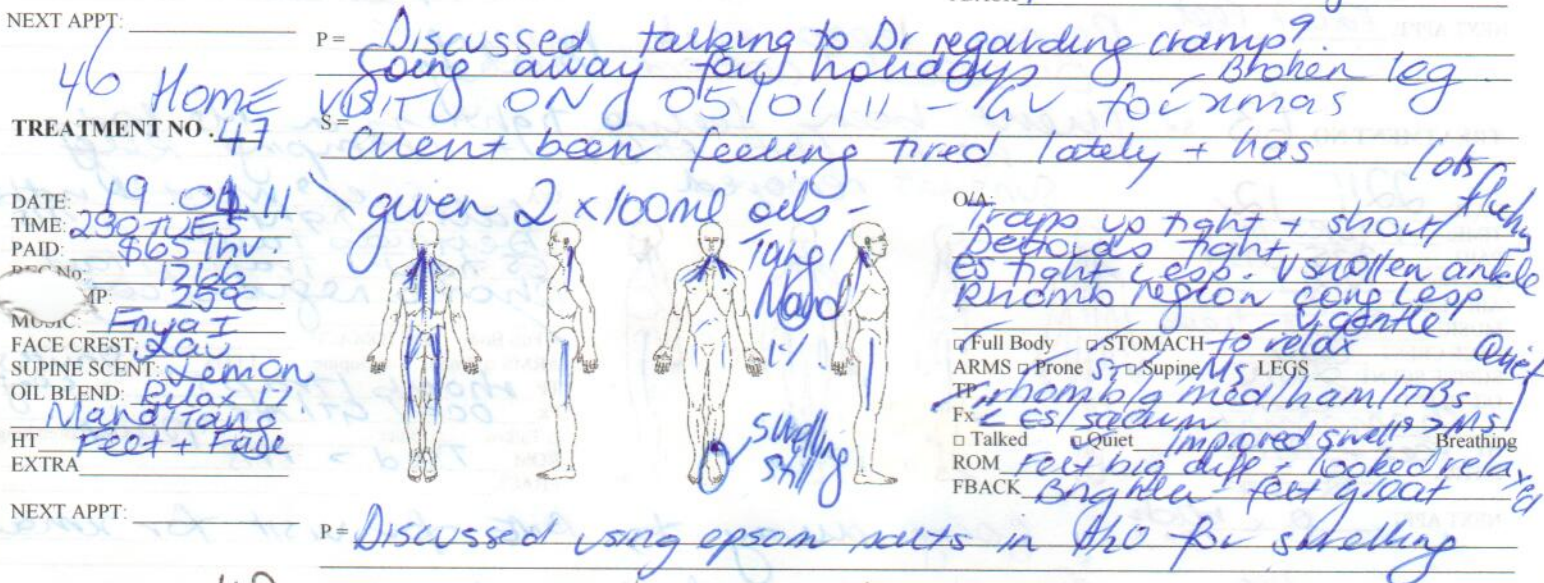 NEXT APPT:
P= Discussed talking to Dr regarding cramp?.
Going away for holidays - Broken leg.
46 Home VISIT ON 05/01/11 - GV for xmas
TREATMENT NO. 47
S= Client been feeling tired lately + has lots
given 2 x 100ml oils -
Tang/
Mand
1%
DATE: 19.01.11
TIME: 230 TUES
PAID: $65 Inv.
No:
MP: 259
MUSIC: Enya I
FACE CREST: Lav
SUPINE SCENT: Lemon
OIL BLEND: Relax 1%
Mand/Tang
HT Feet + Face
EXTRA
swelling
still
O/A:
Traps up tight + short/
Deltoids tight
ES tight L esp. V swollen ankle
Rhomb region cong L esp
V gentle
□ Full Body □ STOMACH to relax Quiet
ARMS □ Prone □ Supine Ms LEGS
TP rhomb/g med/ham/ITBs
Fx L ES/sacrum
□ Talked □ Quiet Improved swell > Ms Breathing
ROM Felt big diff + looked relaxed
FBACK Brighter - felt great
NEXT APPT:
P= Discussed using epsom salts in H2O for swelling